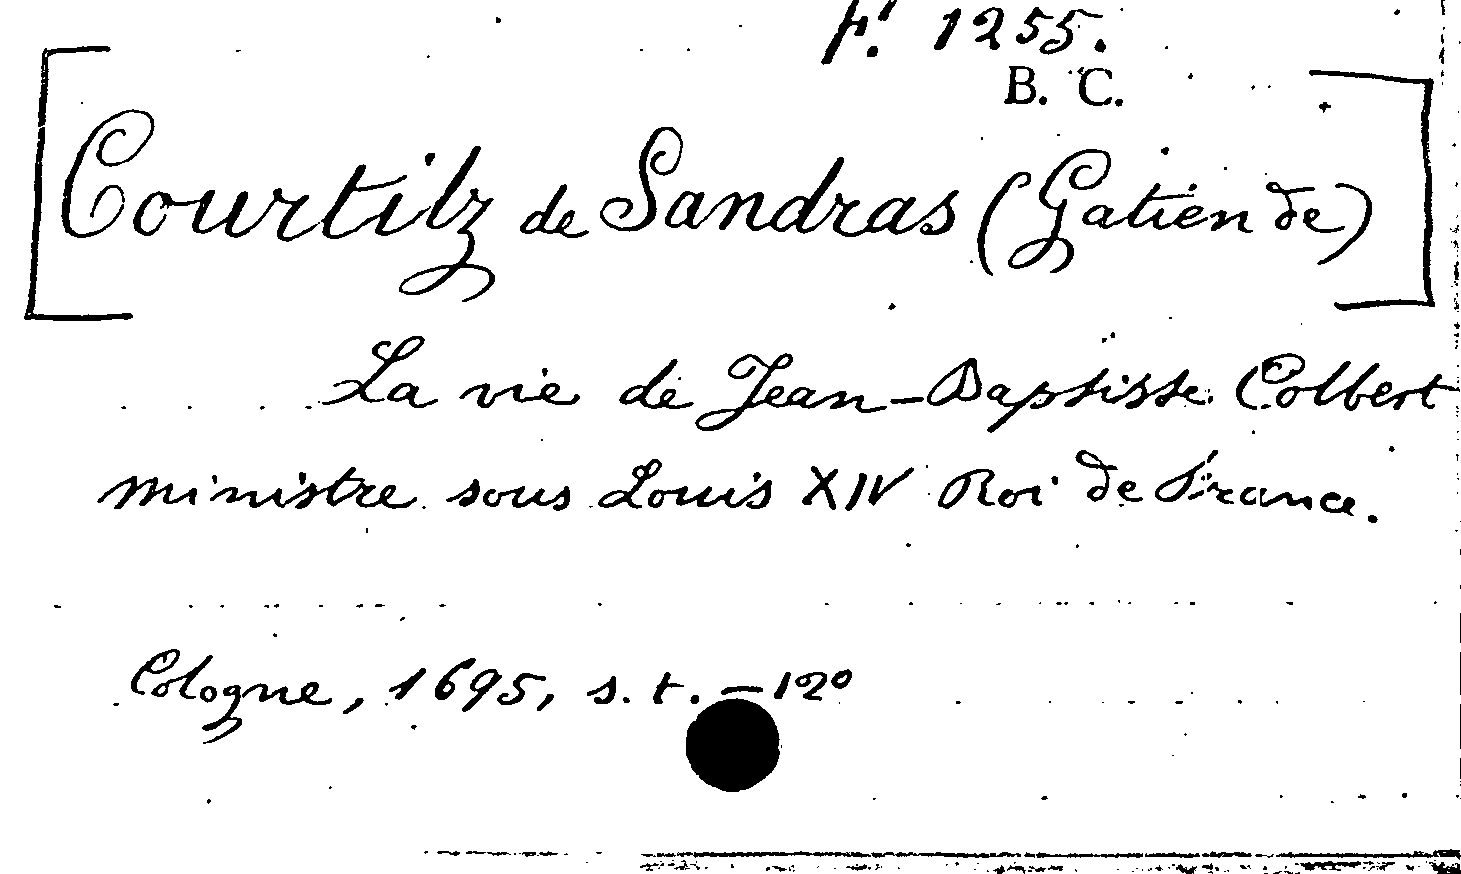 F. 1255.
B. C.
[Courtilz de Sandras (Gatien de)]
La vie de Jean-Baptiste Colbert
ministre sous Louis XIV Roi de France.
Cologne, 1695, s. t. - 12º